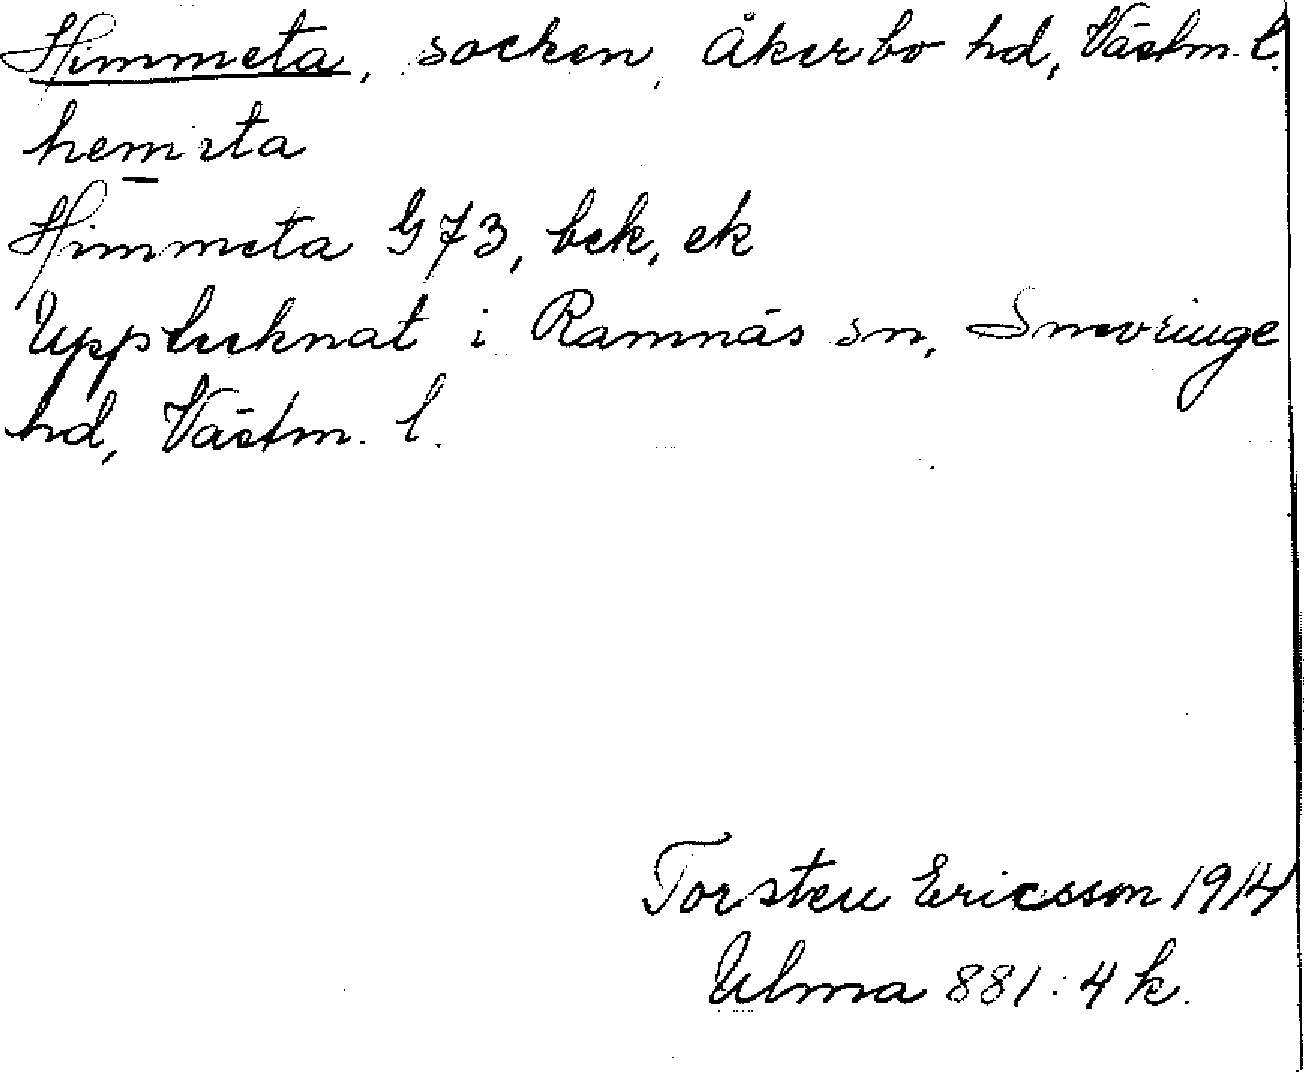 Himmeta, socken, Åkerbo hd, Västm. l.
hemita
Himmeta G 73, bek, ek
Upptecknat i Ramnäs sn, Snevringe
hd, Västm. l.
Torsten Ericsson 1914
Ulma 881:4 k.